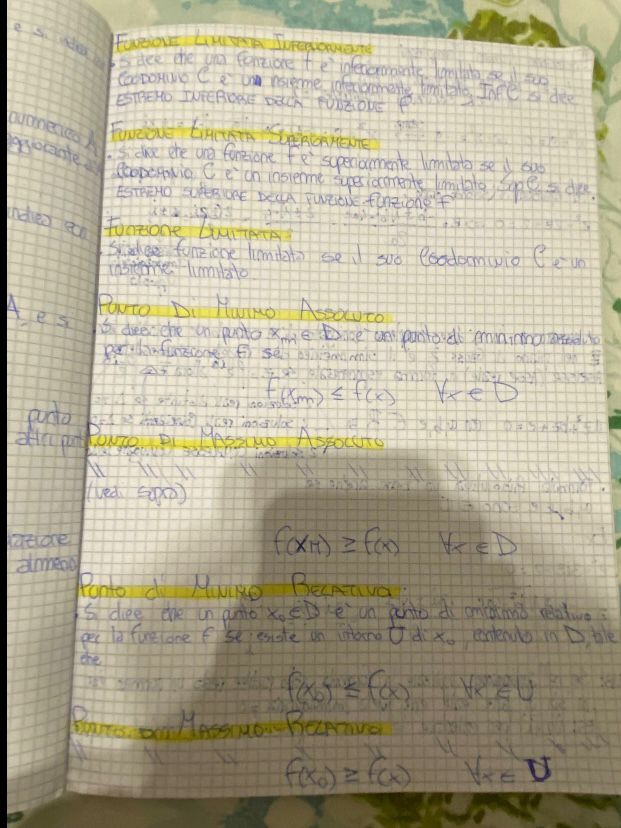 FUNZIONE LIMITATA INFERIORMENTE
• Si dice che una funzione f è inferiormente limitata se il suo
Coodominio C è un insieme inferiormente limitato, Inf C si dice
ESTREMO INFERIORE DELLA FUNZIONE f.
FUNZIONE LIMITATA SUPERIORMENTE
• Si dice che una funzione f è superiormente limitata se il suo
Coodominio C è un insieme superiormente limitato, Sup C si dice
ESTREMO SUPERIORE DELLA FUNZIONE funzione f
FUNZIONE LIMITATA:
• Si dice funzione limitata se il suo Coodominio C è un
insieme limitato
PUNTO DI MINIMO ASSOLUTO
• Si dice che un punto xm ∈ D è un punto di minimo assoluto
per la funzione f se
f(xm) ≤ f(x) ∀x ∈ D
PUNTO DI MASSIMO ASSOLUTO
\\ \\ \\ \\ \\ \\ \\ \\ \\
(vedi sopra)
f(xM) ≥ f(x) ∀x ∈ D
Punto di MINIMO RELATIVO:
• Si dice che un punto x₀ ∈ D è un punto di minimo relativo
per la funzione f se esiste un intorno U di x₀, contenuto in D, tale
che
f(x₀) ≤ f(x) ∀x ∈ U
PUNTO DI MASSIMO RELATIVO
\\ \\ \\ \\ \\ \\ \\ \\
f(x₀) ≥ f(x) ∀x ∈ U
e si
numerico A
A, e s
punto
altri punti
almeno